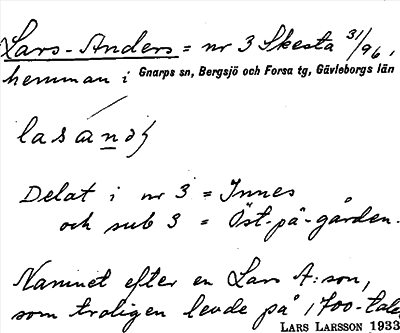 Lars-Anders = nr 3 Skesta 31/96,
hemman i Gnarps sn, Bergsjö och Forsa tg, Gävleborgs län
Delat i nr 3 = Innes
och sub 3 = Öst-på-gården.
Namnet efter en Lars A:son,
som troligen levde på 1700-talet
LARS LARSSON 1933